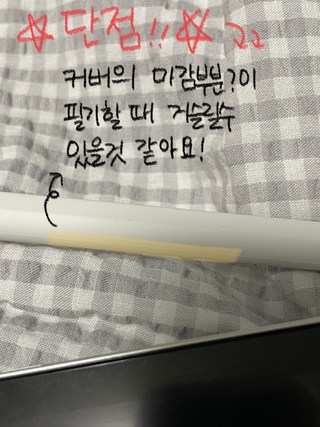 ☆단점!!☆ ㄱㄱ
커버의 마감부분?이
필기할 때 거슬릴수
있을것 같아요!